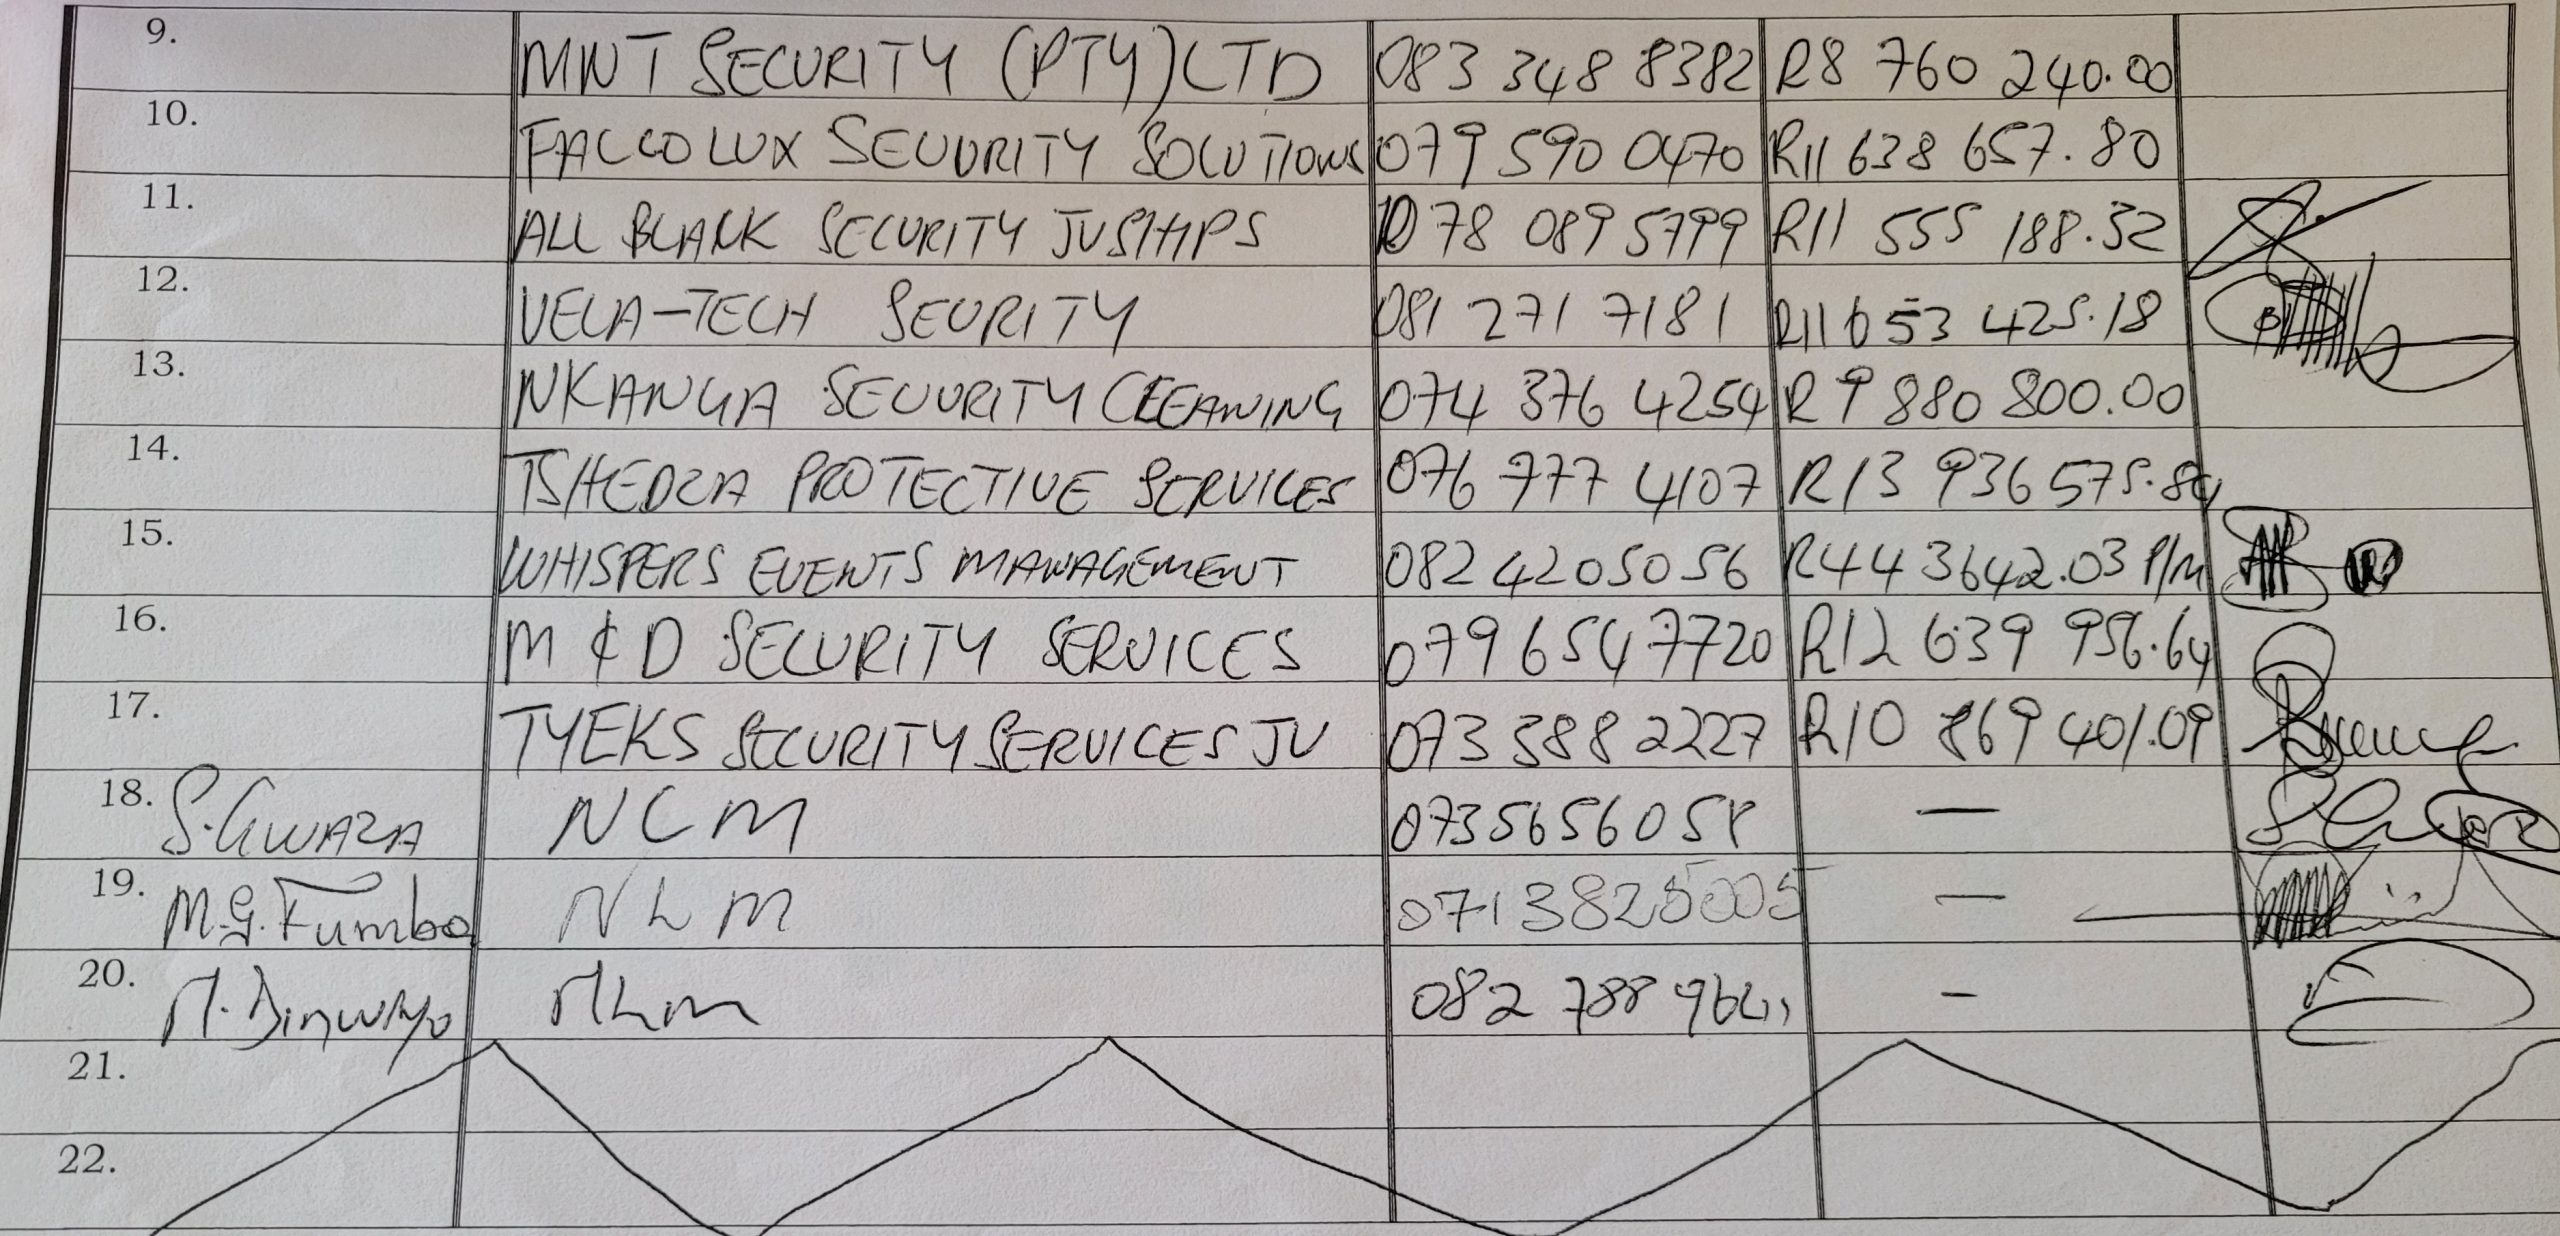 9. MNT SECURITY (PTY) LTD 083 348 8382 R8 760 240.00
10. FALCOLUX SECUURITY SOLUTIONS 079 590 0470 R11 638 657.80
11. ALL BLANK SECURITY 078 089 5799 R11 555 188.32
12. VELA-TECH SEURITY 081 271 7181 R11 653 425.18
13. NKANGA SECUURITY CLEEANING 074 376 4254 R9 880 800.00
14. TSHEDZA PROTECTIVE SERVICES 076 777 4107 R13 936 575.84
15. WHISPERS EVENTS MANAGEMENT 082 4205056 R443642.03 P/M
16. M & D SECURITY SERVICES 079 654 7720 R12 639 956.64
17. TYEKS SECURITY SERVICES JV 073 388 2227 R10 869 401.09
18. S.GWAZA NLM 0735656058 —
19. M.G.Fumbo NLM —
20. NLM 082 788 –
21.
22.